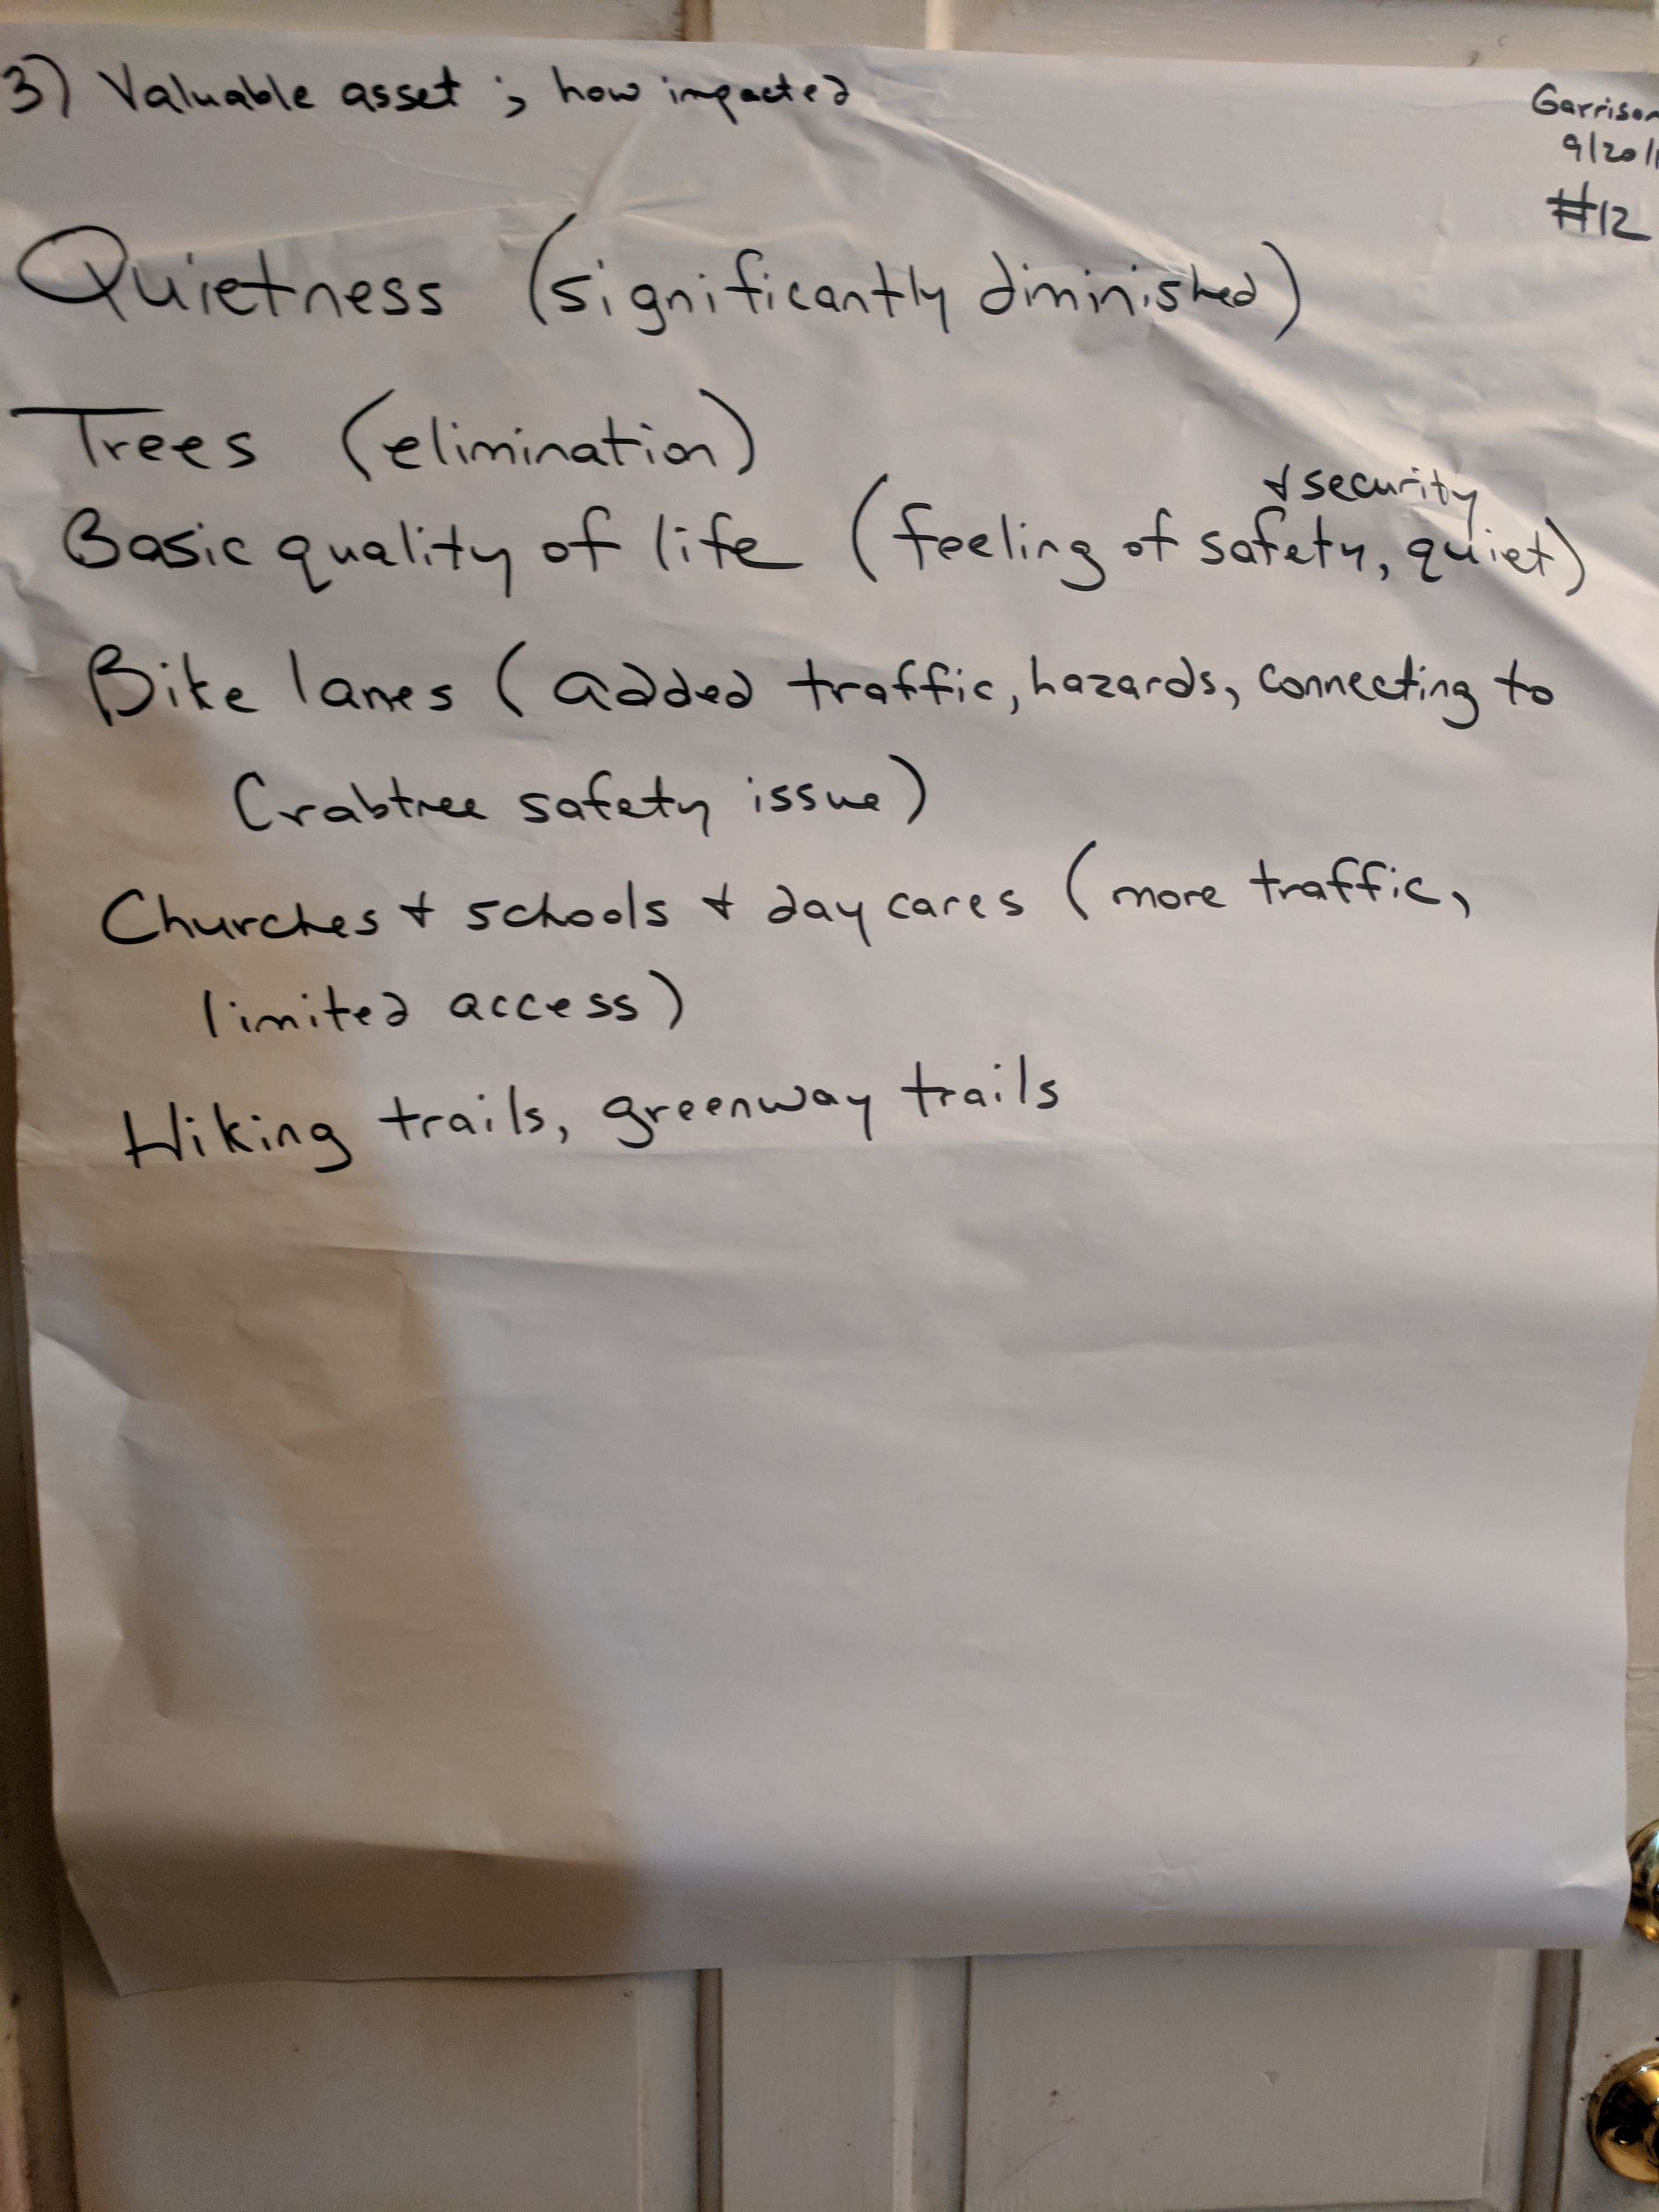 3) Valuable asset ; how impacted
Garrison
9/20/1
#12
Quietness (significantly diminished)
Trees (elimination)
& security
Basic quality of life (feeling of safety, quiet)
Bike lanes (added traffic, hazards, connecting to
Crabtree safety issue)
Churches & schools & day cares (more traffic,
limited access)
Hiking trails, greenway trails